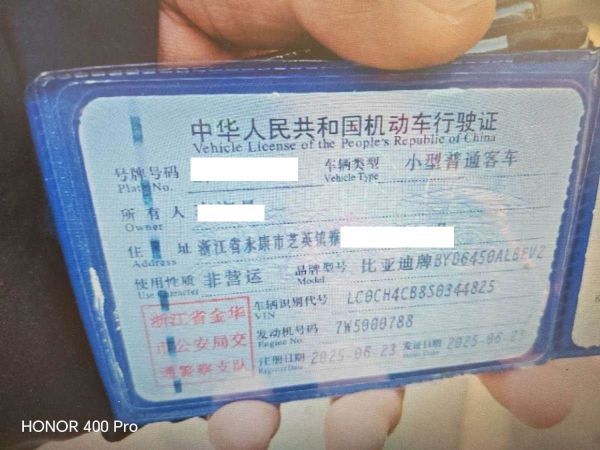 中华人民共和国机动车行驶证
Vehicle License of the People's Republic of China
号牌号码 车辆类型 小型普通客车
Plate No. Vehicle Type
所有人
Owner
住 址 浙江省永康市芝英镇雅
Address
使用性质 非营运 品牌型号 比亚迪牌BYD6450ALBEVZ
Use Character Model
浙江省金华市公安局交通警察支队
车辆识别代号 LC0CH4CB8S0344825
VIN
发动机号码 7W5000788
Engine No.
注册日期 2025-06-23 发证日期 2025-06-23
Register Date Issue Date
HONOR 400 Pro